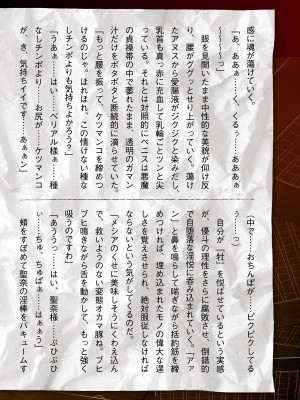 感に魂が蕩けていく。
「あ、あああぁ……く、くるぅ……あああぁ
～～～～っ」
　眼を見開いたまま中性的な美貌が仰け反
り、腰がググッとせり上がっていく。蕩け
たアヌスから愛腸液がジクジクと染みだし、
乳首も真っ赤に充血して乳輪ごとツンと尖
っている。それとは対照的にペニスは悪魔
の貞操帯の中で萎れたまま、透明のガマン
汁だけをポタポタと断続的に滴らせていた。
「もっと腰を振って、ケツマンコを締めつ
けるのじゃ。ほれほれ、この情けない種な
しチンポよりも気持ちよかろう？」
「うあぁ……はい……ベリアル様ぁ……種
なしチンポより……お尻が……ケツマンコ
が、き、気持ちイイです……あぁぁン」
（中で……おちんぽが……ピクピクしてる
ぅ……っ）
　自分が〝牡〟を悦ばせているという実感
が、優斗の理性をさらに腐敗させ、倒錯的
で自堕落な淫悦に呑み込まれていく。「アァ
ン」と鼻を鳴らして喘ぎながら括約筋を締
めつければ、埋め込まれたモノの偉大な逞
しさを覚えさせられ、絶対服従しなければ
ならないという気がしてくるのだ。
「メシアのくせに美味しそうにくわえ込ん
で、救いようのない変態オカマ豚ね。ブヒ
ブヒ鳴きながら舌を動かして、もっと強く
吸うのですわ」
「あううっ……はい、聖奈様……ぶひぶひ
ぃ……ちゅ、ちゅぱぁ……はぁぅ」
　頬をすぼめて聖奈の淫棒をバキュームす